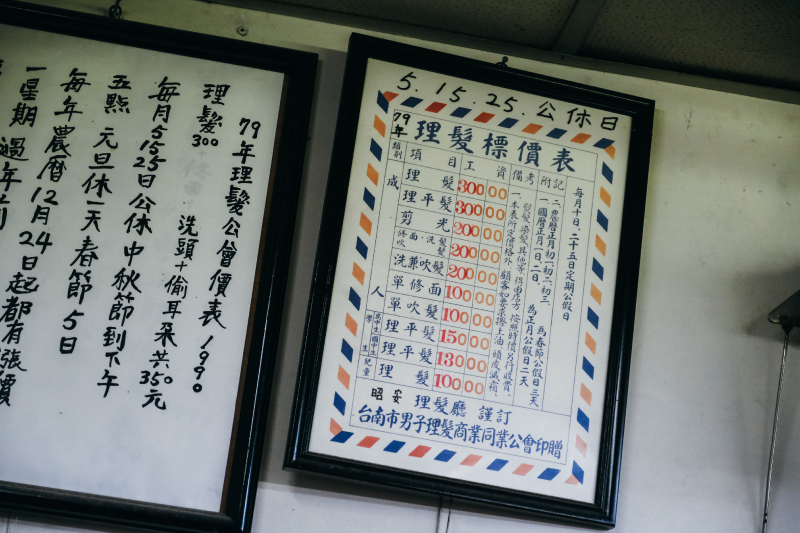 79年理髮公會價表 1990
理髮300
洗頭+偷耳朵共350元
每月5 15 25日公休 中秋節到下午
五點 元旦休一天 春節5日
每年農曆12月24日起都有張價
一星期 過年前
5.15.25.公休日
79年 理髮標價表
類別 項目 工資 備考 附記
成人
理髮 300 00
理平髮 300 00
剪光 200 00
修面·洗髮 200 00
洗兼吹髮 200 00
單修面 100 00
單吹髮 100 00
理平髮 150 00
理平髮 130 00
兒童 理髮 100 00
每月十日、二十五日定期公假日
二、農曆正月初一初二初三、為春節公假日三天
一、國曆正月一日、二日、為正月公假日二天
一、本表所定價格外、顧客如要求擦上油、頭皮滅霜、
昭安 理髮廳 謹訂
台南市男子理髮商業同業公會印贈